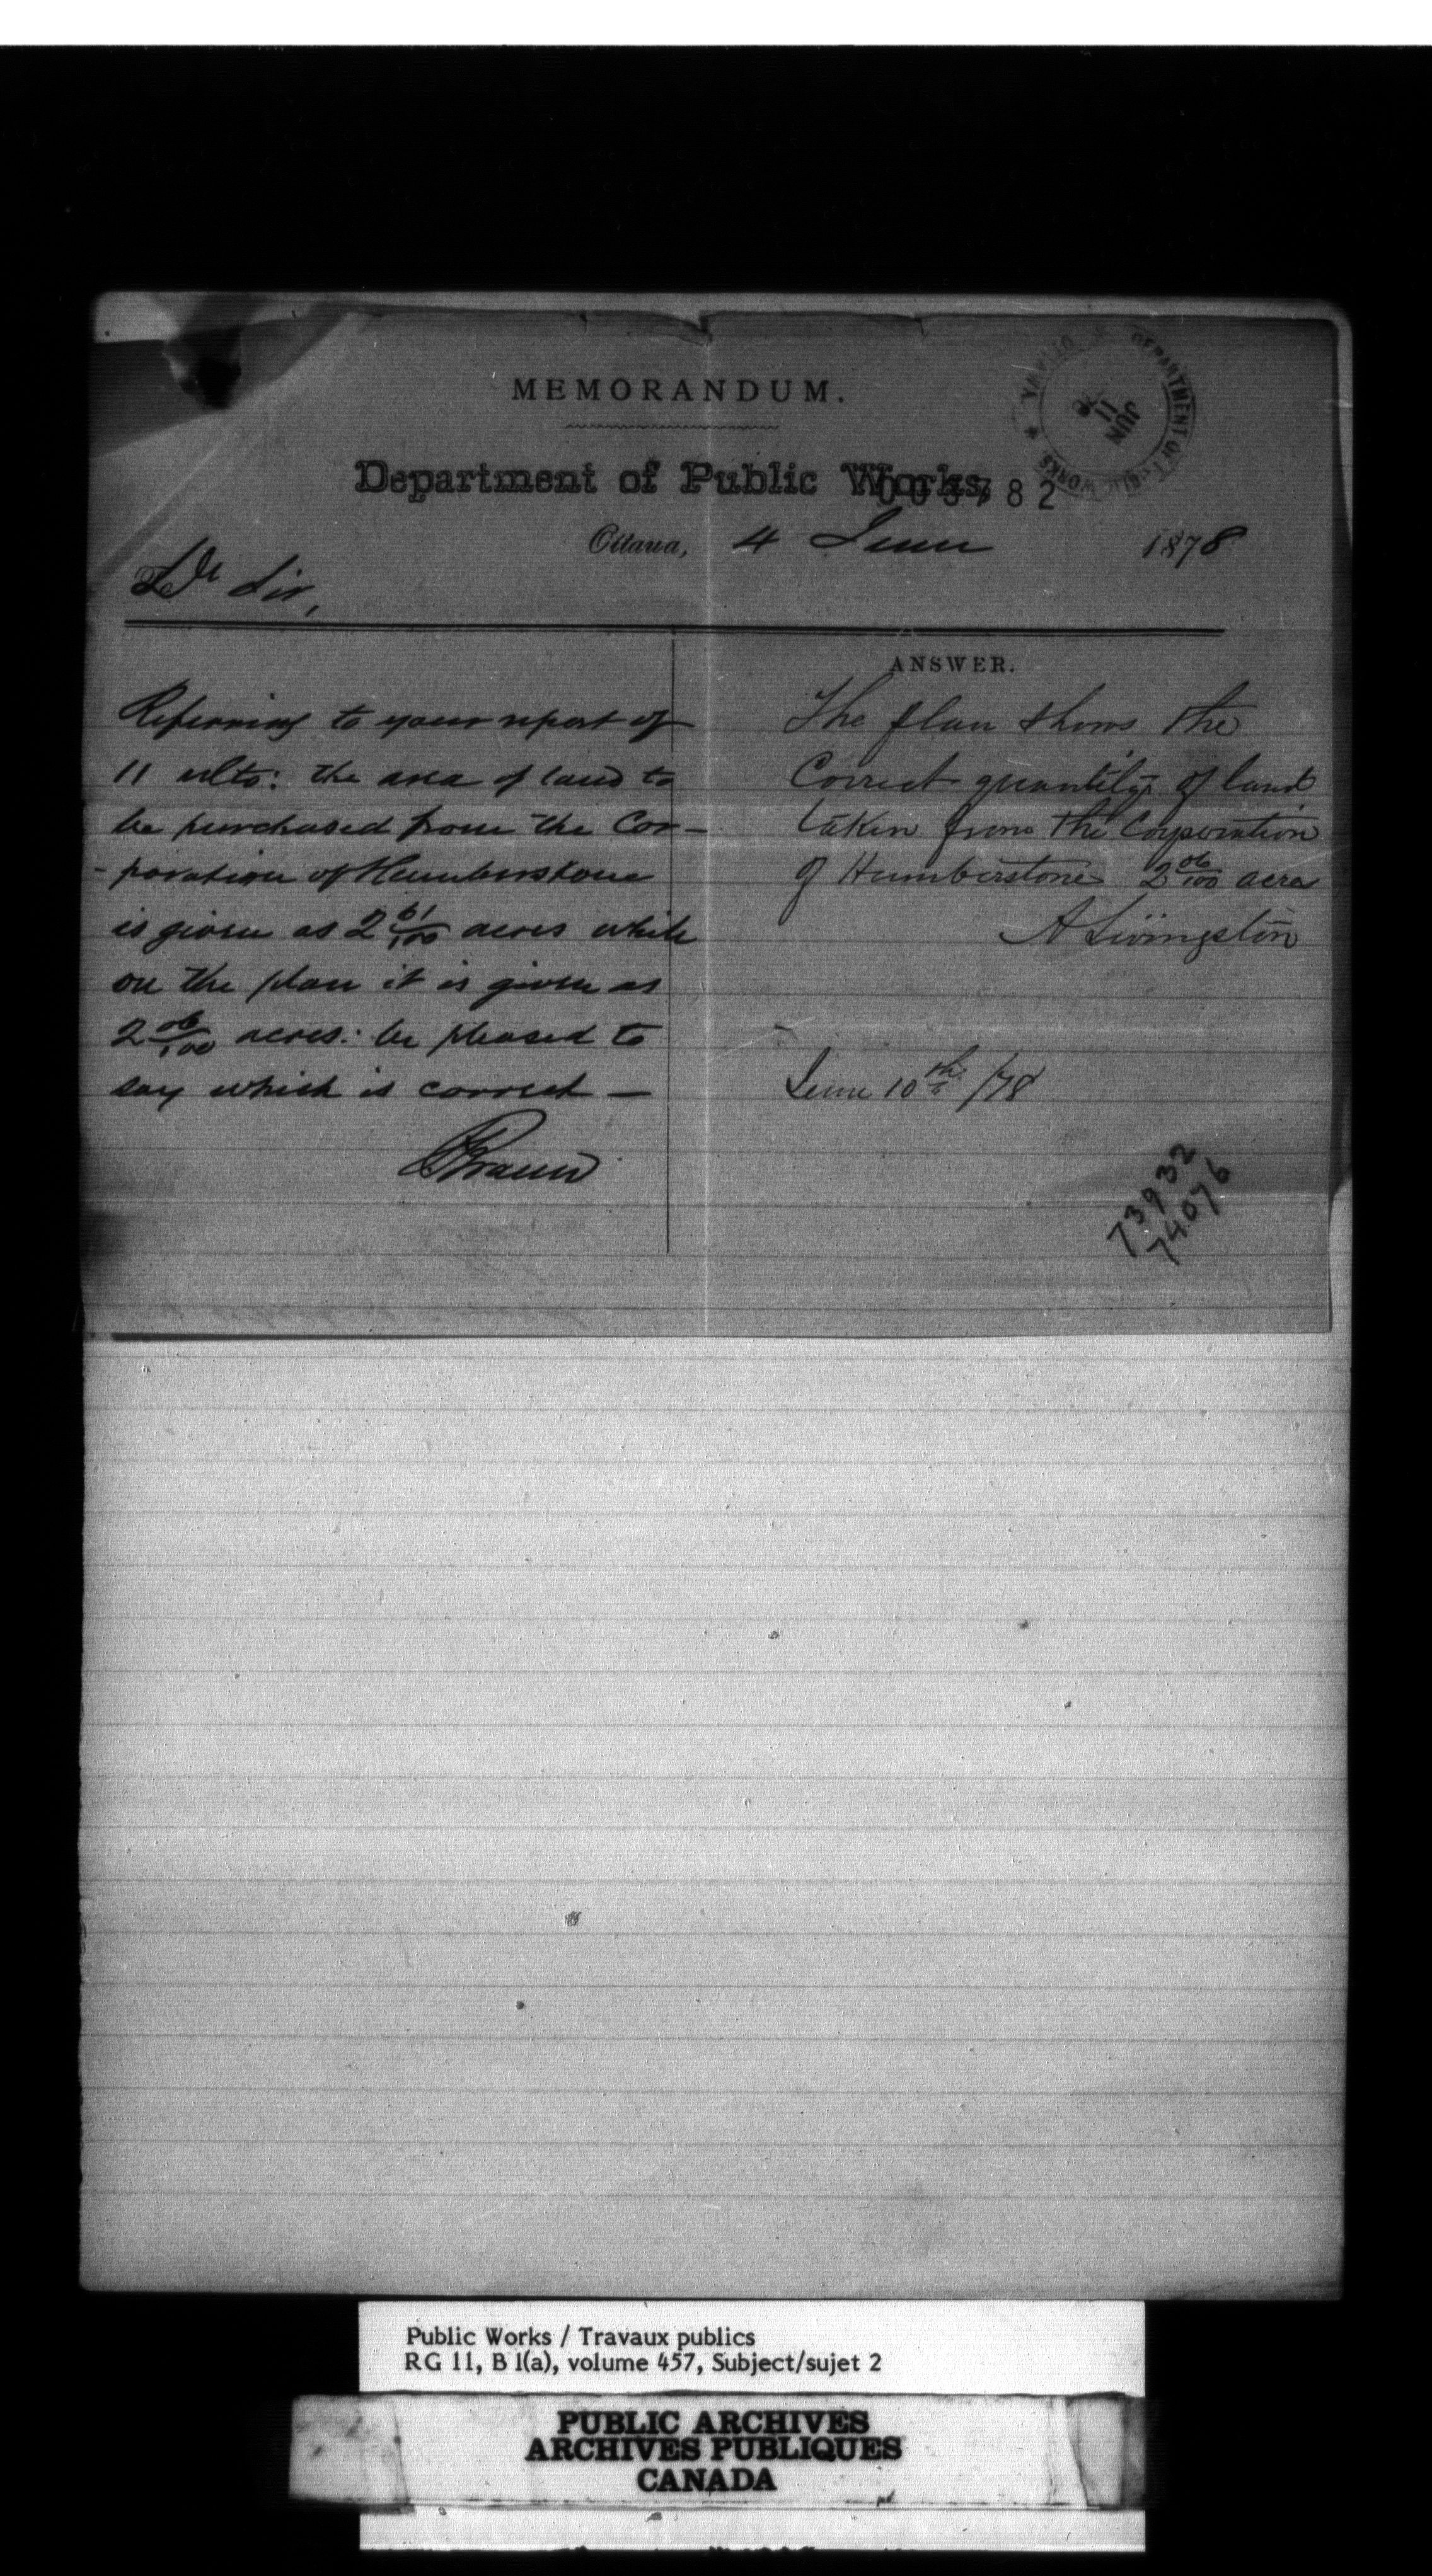 MEMORANDUM.
DEPARTMENT OF PUBLIC WORKS * OTTAWA
JUN 11 78
Department of Public Works,
003782
Ottawa, 4 June 1878
Dr Sir,
Referring to your report of
11 ulto: the area of land to
be purchased from the Cor-
-poration of Humberstone
is given as 2 61/100 acres while
on the plan it is given as
2 06/100 acres: be pleased to
say which is correct —
FBraun
ANSWER.
The plan shows the
Correct quantity of land
taken from the Corporation
of Humberstone 2 06/100 acres
A Livingston
June 10th /78
73932
74076
Public Works / Travaux publics
RG 11, B 1(a), volume 457, Subject/sujet 2
PUBLIC ARCHIVES
ARCHIVES PUBLIQUES
CANADA